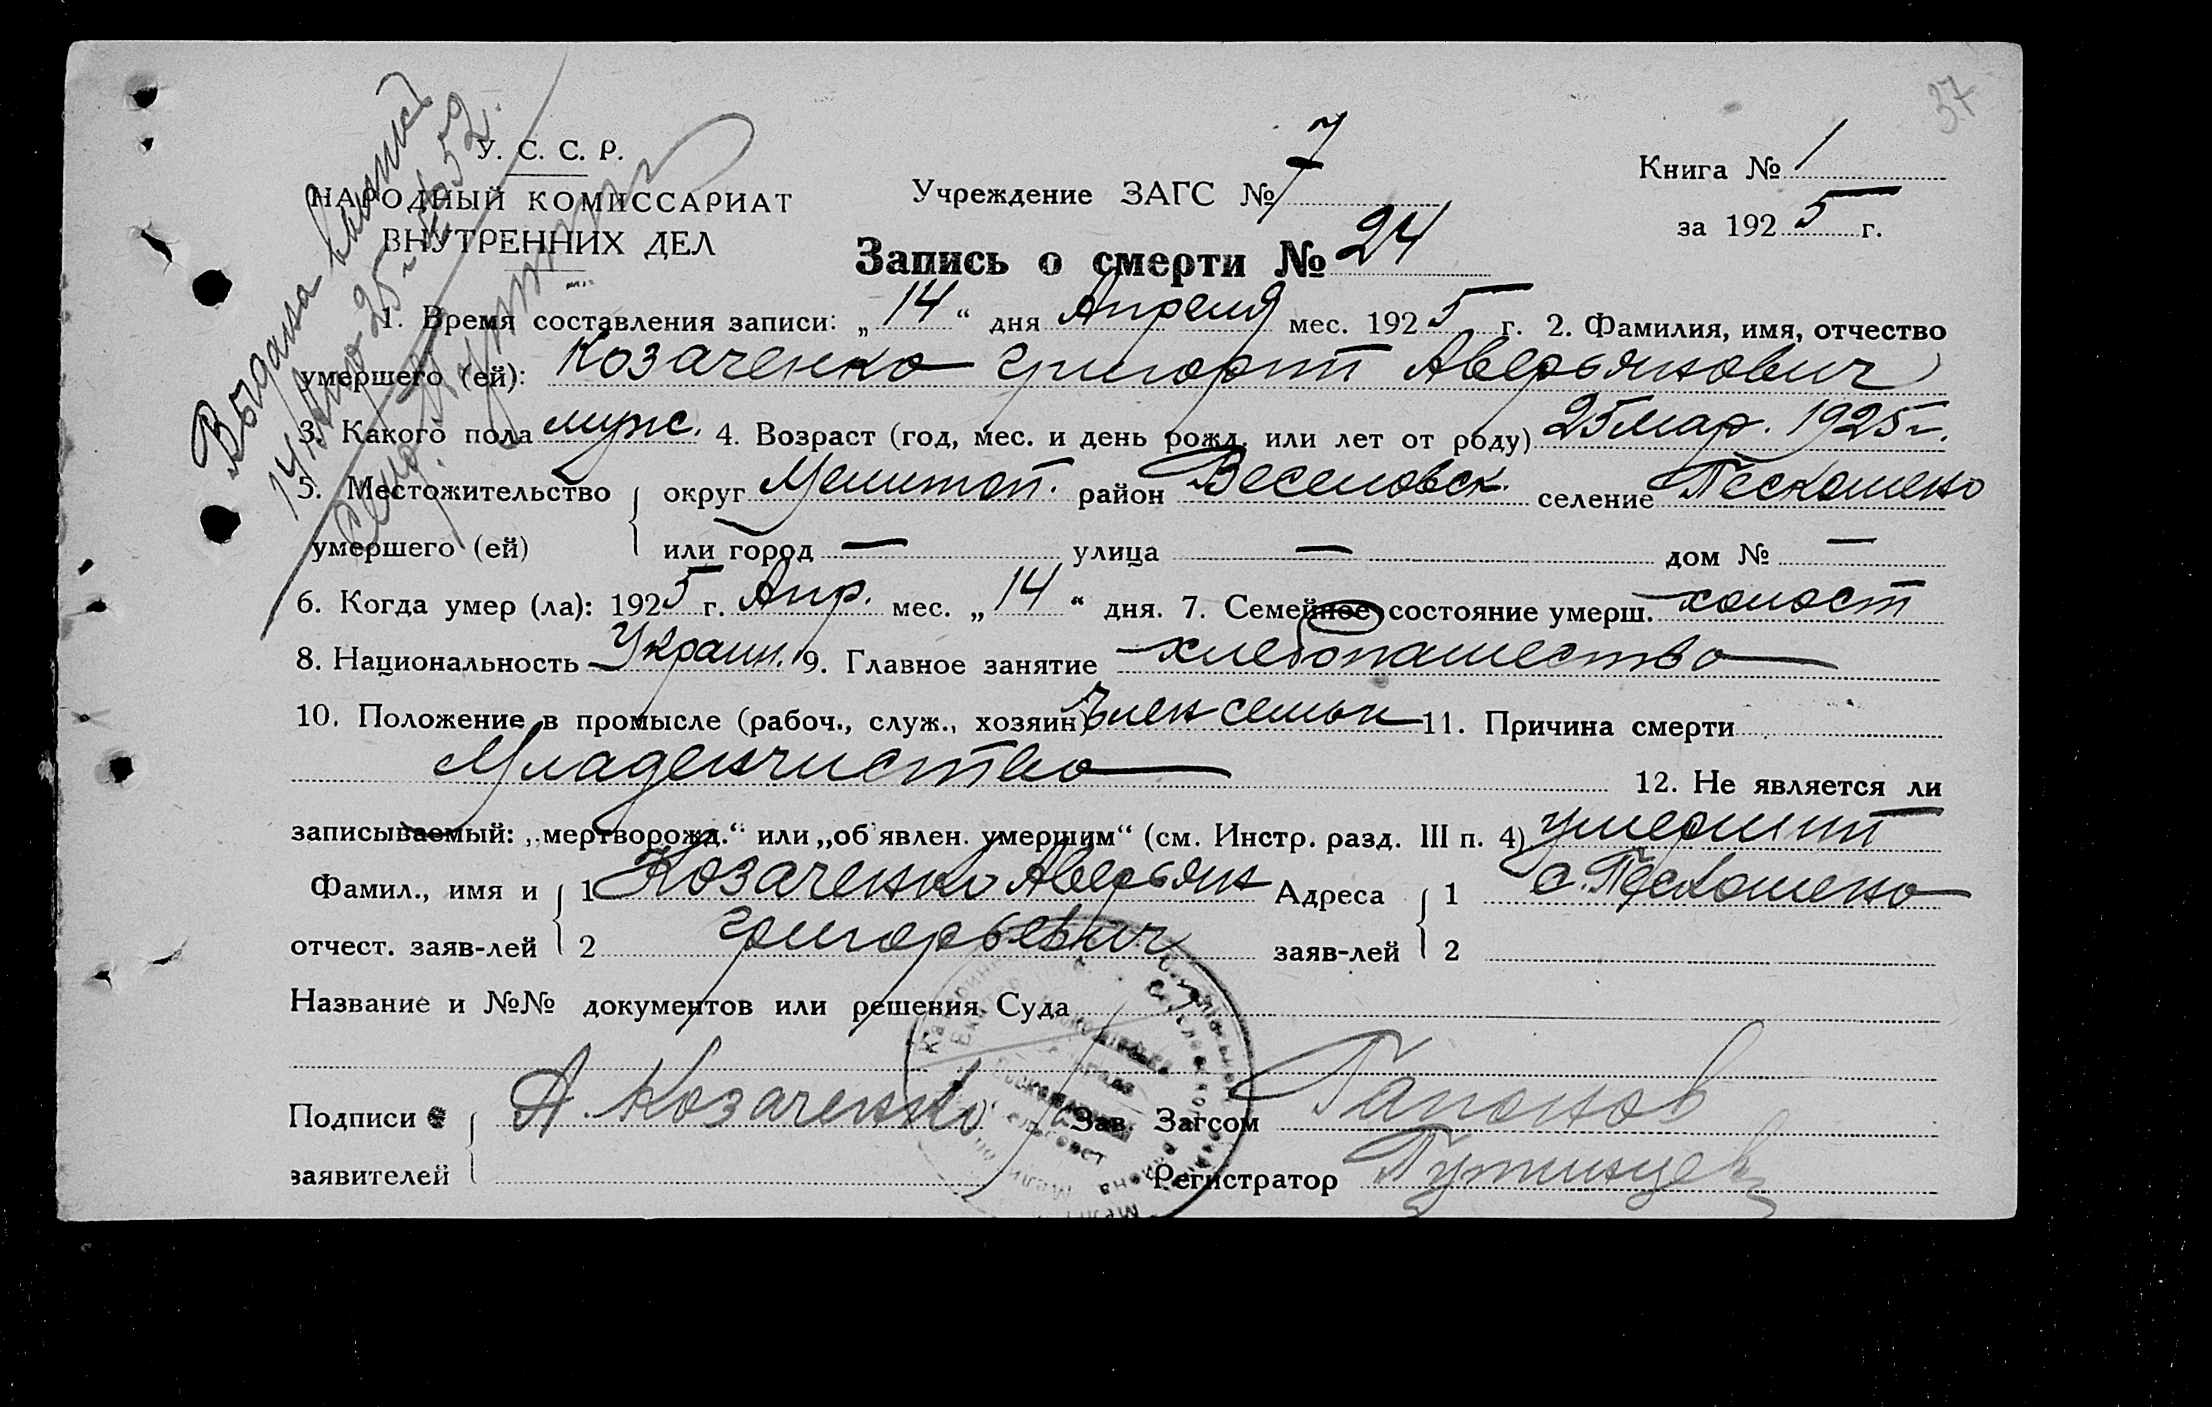 37
У. С. С. Р.
НАРОДНЫЙ КОМИССАРИАТ
ВНУТРЕННИХ ДЕЛ
Выдана выпись
14/IV-25 г. № 52.
Учреждение ЗАГС № 7
Книга № 1
за 1925 г.
Запись о смерти № 24
1. Время составления записи: „14“ дня Апреля мес. 1925 г. 2. Фамилия, имя, отчество
умершего (ей): Козаченко Григорий Аверьянович
3. Какого пола муж. 4. Возраст (год, мес. и день рожд. или лет от роду) 25 мар. 1925 г.
5. Местожительство округ Мелитоп. район Веселовск. селение Пескошено
умершего (ей) или город — улица — дом № —
6. Когда умер (ла): 1925 г. Апр. мес. „14“ дня. 7. Семейное состояние умерш. холост
8. Национальность Украин. 9. Главное занятие хлебопашество
10. Положение в промысле (рабоч., служ., хозяин) член семьи 11. Причина смерти
Младенчиство
12. Не является ли
записываемый: „мертворожд.“ или „об'явлен. умершим“ (см. Инстр. разд. III п. 4) умерший
Фамил., имя и 1 Козаченко Аверьян Адреса 1 с. Пескошено
отчест. заяв-лей 2 Григорьевич заяв-лей 2
Название и №№ документов или решения Суда
Подписи А. Козаченко Зав. Загсом Гапонов
заявителей Регистратор Путинцев